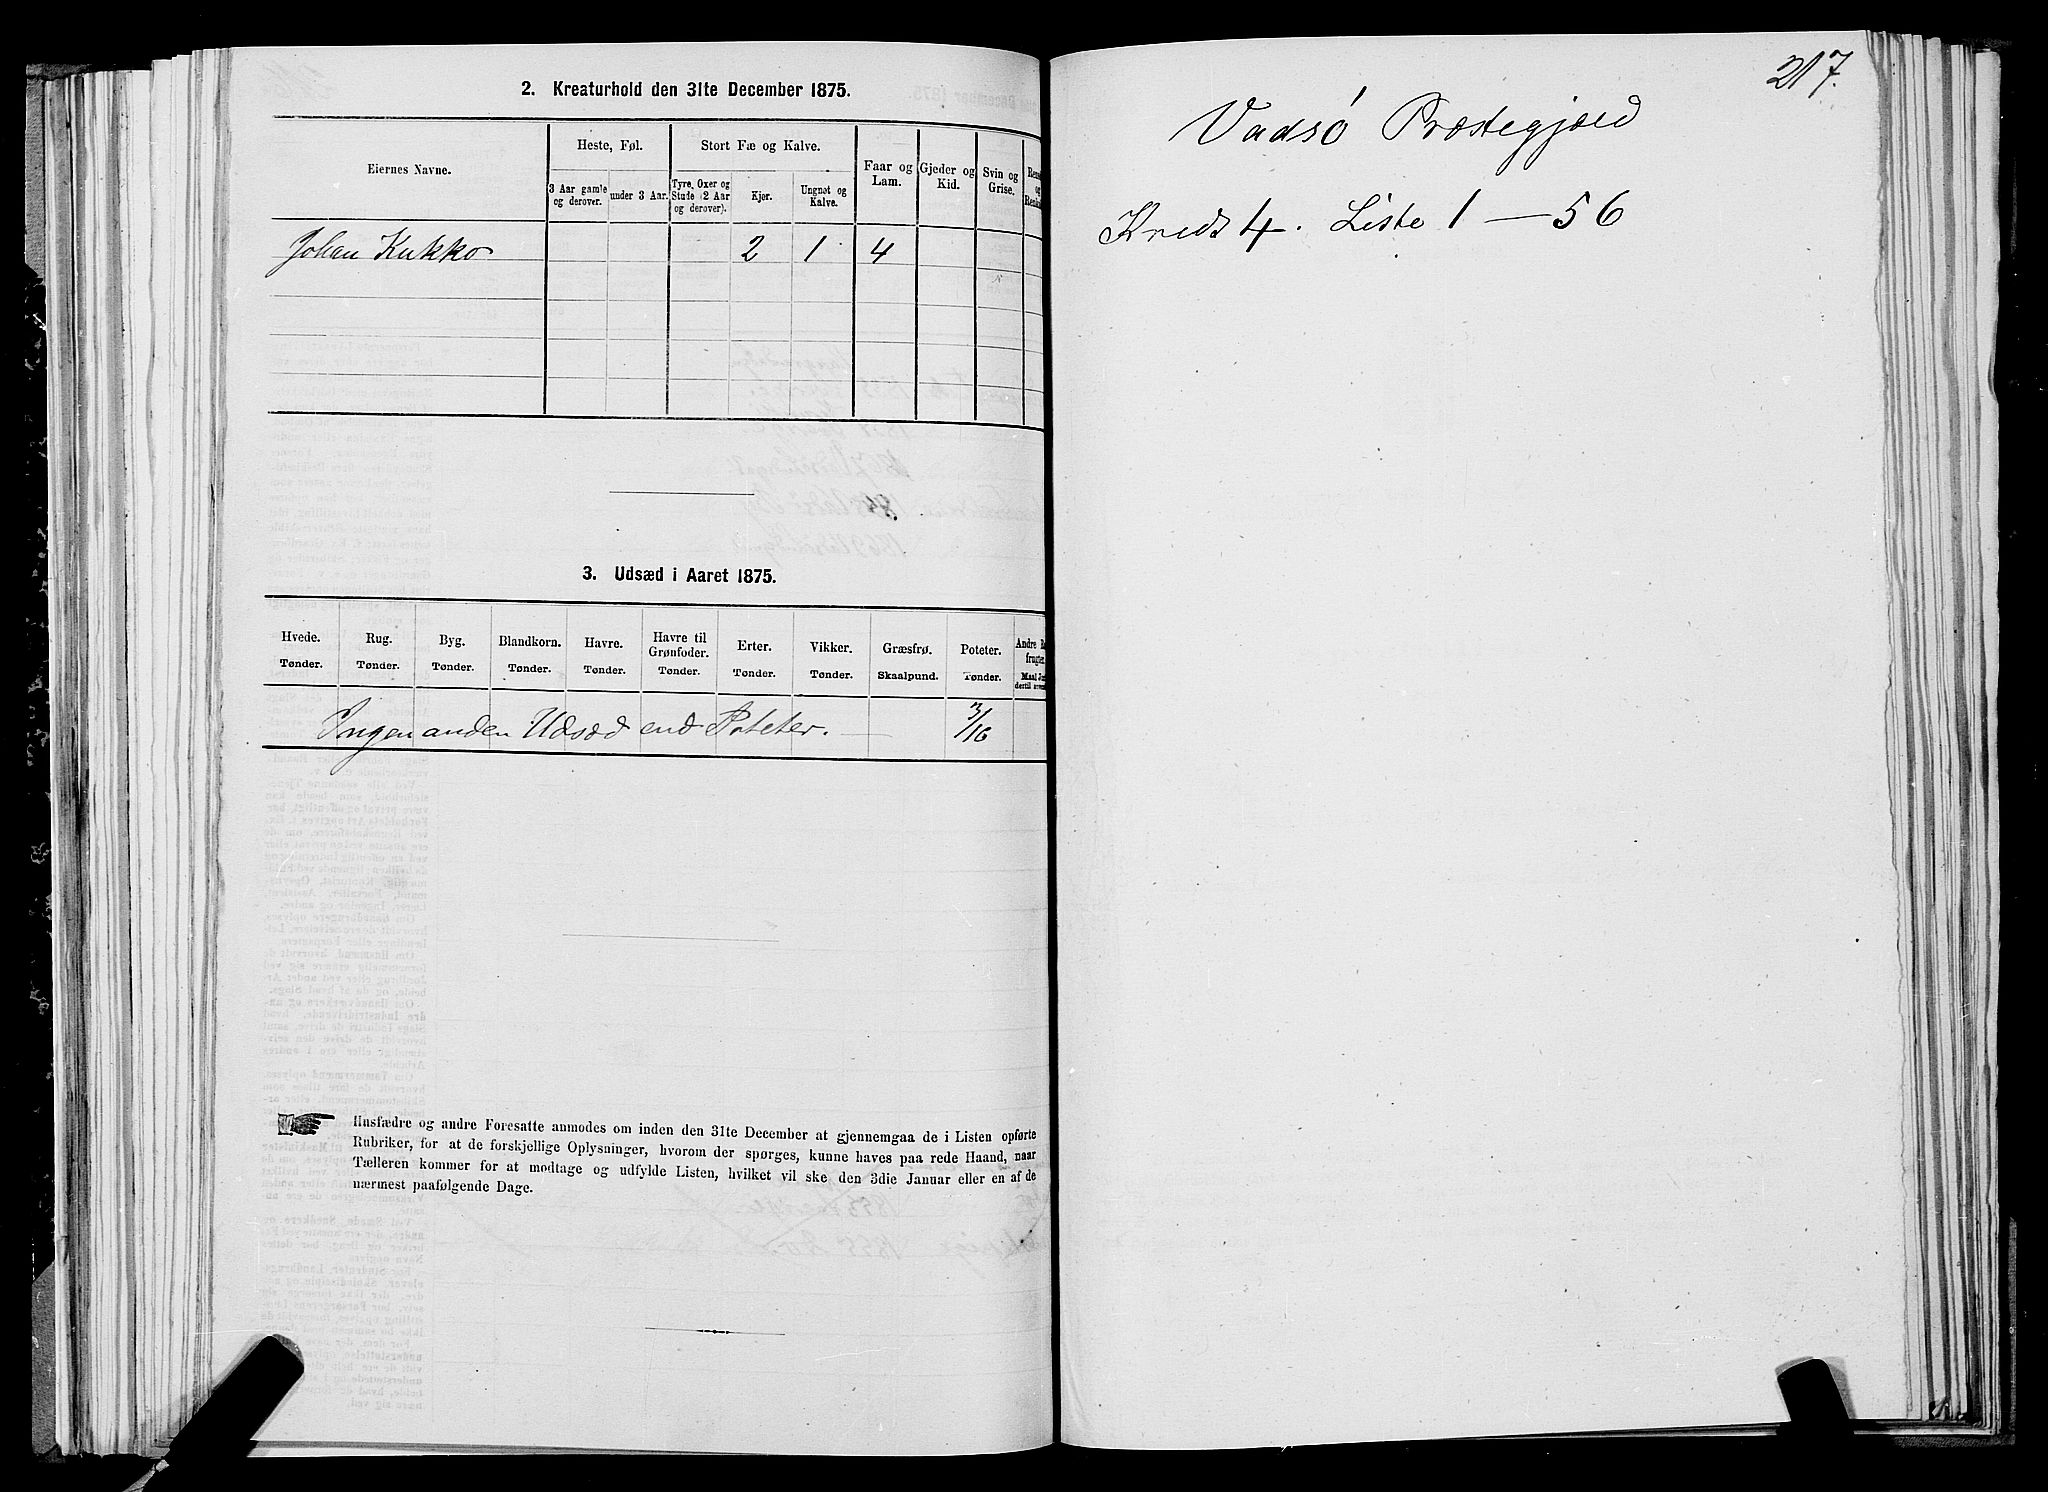 2. Kreaturhold den 31te December 1875.
Eiernes Navne.
Heste, Føl.
Stort Fæ og Kalve.
Faar og
Lam.
Gjeder og
Kid.
Svin og
Grise.
3 Aar gamle
og derover.
under 3 Aar.
Tyre, Oxer og
Stude (2 Aar
og derover).
Kjer.
Ungnøt og
Kalve.
Johan Kukko 2 1 4
3. Udsæd i Aaret 1875.
Hvede. Rug. Byg. Blandkorn. Havre. Havre til Grønfoder. Erter. Vikker. Græsfrø. Poteter.
Tønder. Tønder. Tønder. Tønder. Tønder. Tønder. Tønder. Tønder. Skaalpund. Tønder.
Ingen anden Udsæd end Poteter. 3/16
Husfædre og andre Foresatte anmodes om inden den 31te December at gjennemgaa de i Listen opførte
Rubriker, for at de forskjellige Oplysninger, hvorom der spørges, kunne haves paa rede Haand, naar
Tælleren kommer for at modtage og udfylde Listen, hvilket vil ske den 3die Januar eller en af de
nærmest paafølgende Dage.
217.
Vadsø Præstegjæld
Kreds 4. Liste 1 — 56